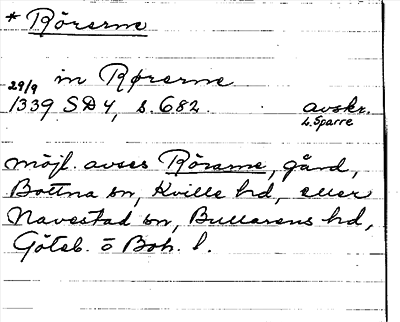 * Rörarne
in Rørarne
29/9
1339 SD 4, s. 682. avskr.
L. Sparre
möjl. avses Rörarne, gård,
Bottna sn, Kville hd, eller
Navestad sn, Bullarens hd,
Göteb. o Boh. l.